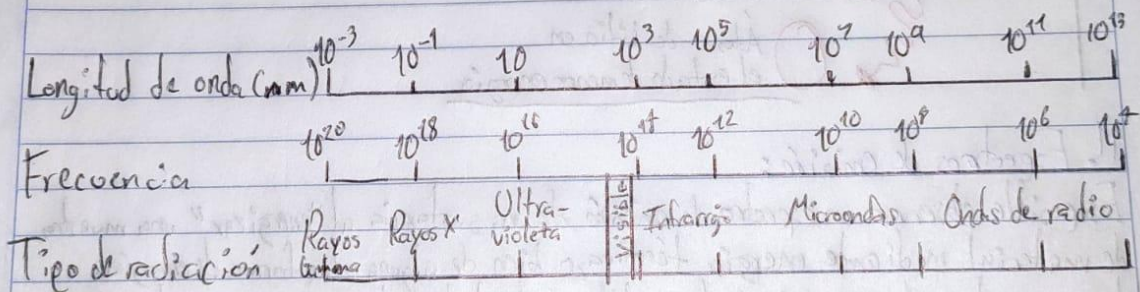 Longitud de onda (nm) 10⁻³ 10⁻¹ 10 10³ 10⁵ 10⁷ 10⁹ 10¹¹ 10¹³
Frecuencia 10²⁰ 10¹⁸ 10¹⁶ 10¹⁴ 10¹² 10¹⁰ 10⁸ 10⁶ 10⁴
Tipo de radiación Rayos Gamma Rayos X Ultra-violeta Visible Infrarrojo Microondas Ondas de radio